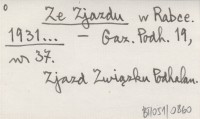 Ze Zjazdu w Rabce.
1931... — Gaz. Podh. 19,
nr 37.
Zjazd Związku Podhalan.
BJ/051/0860